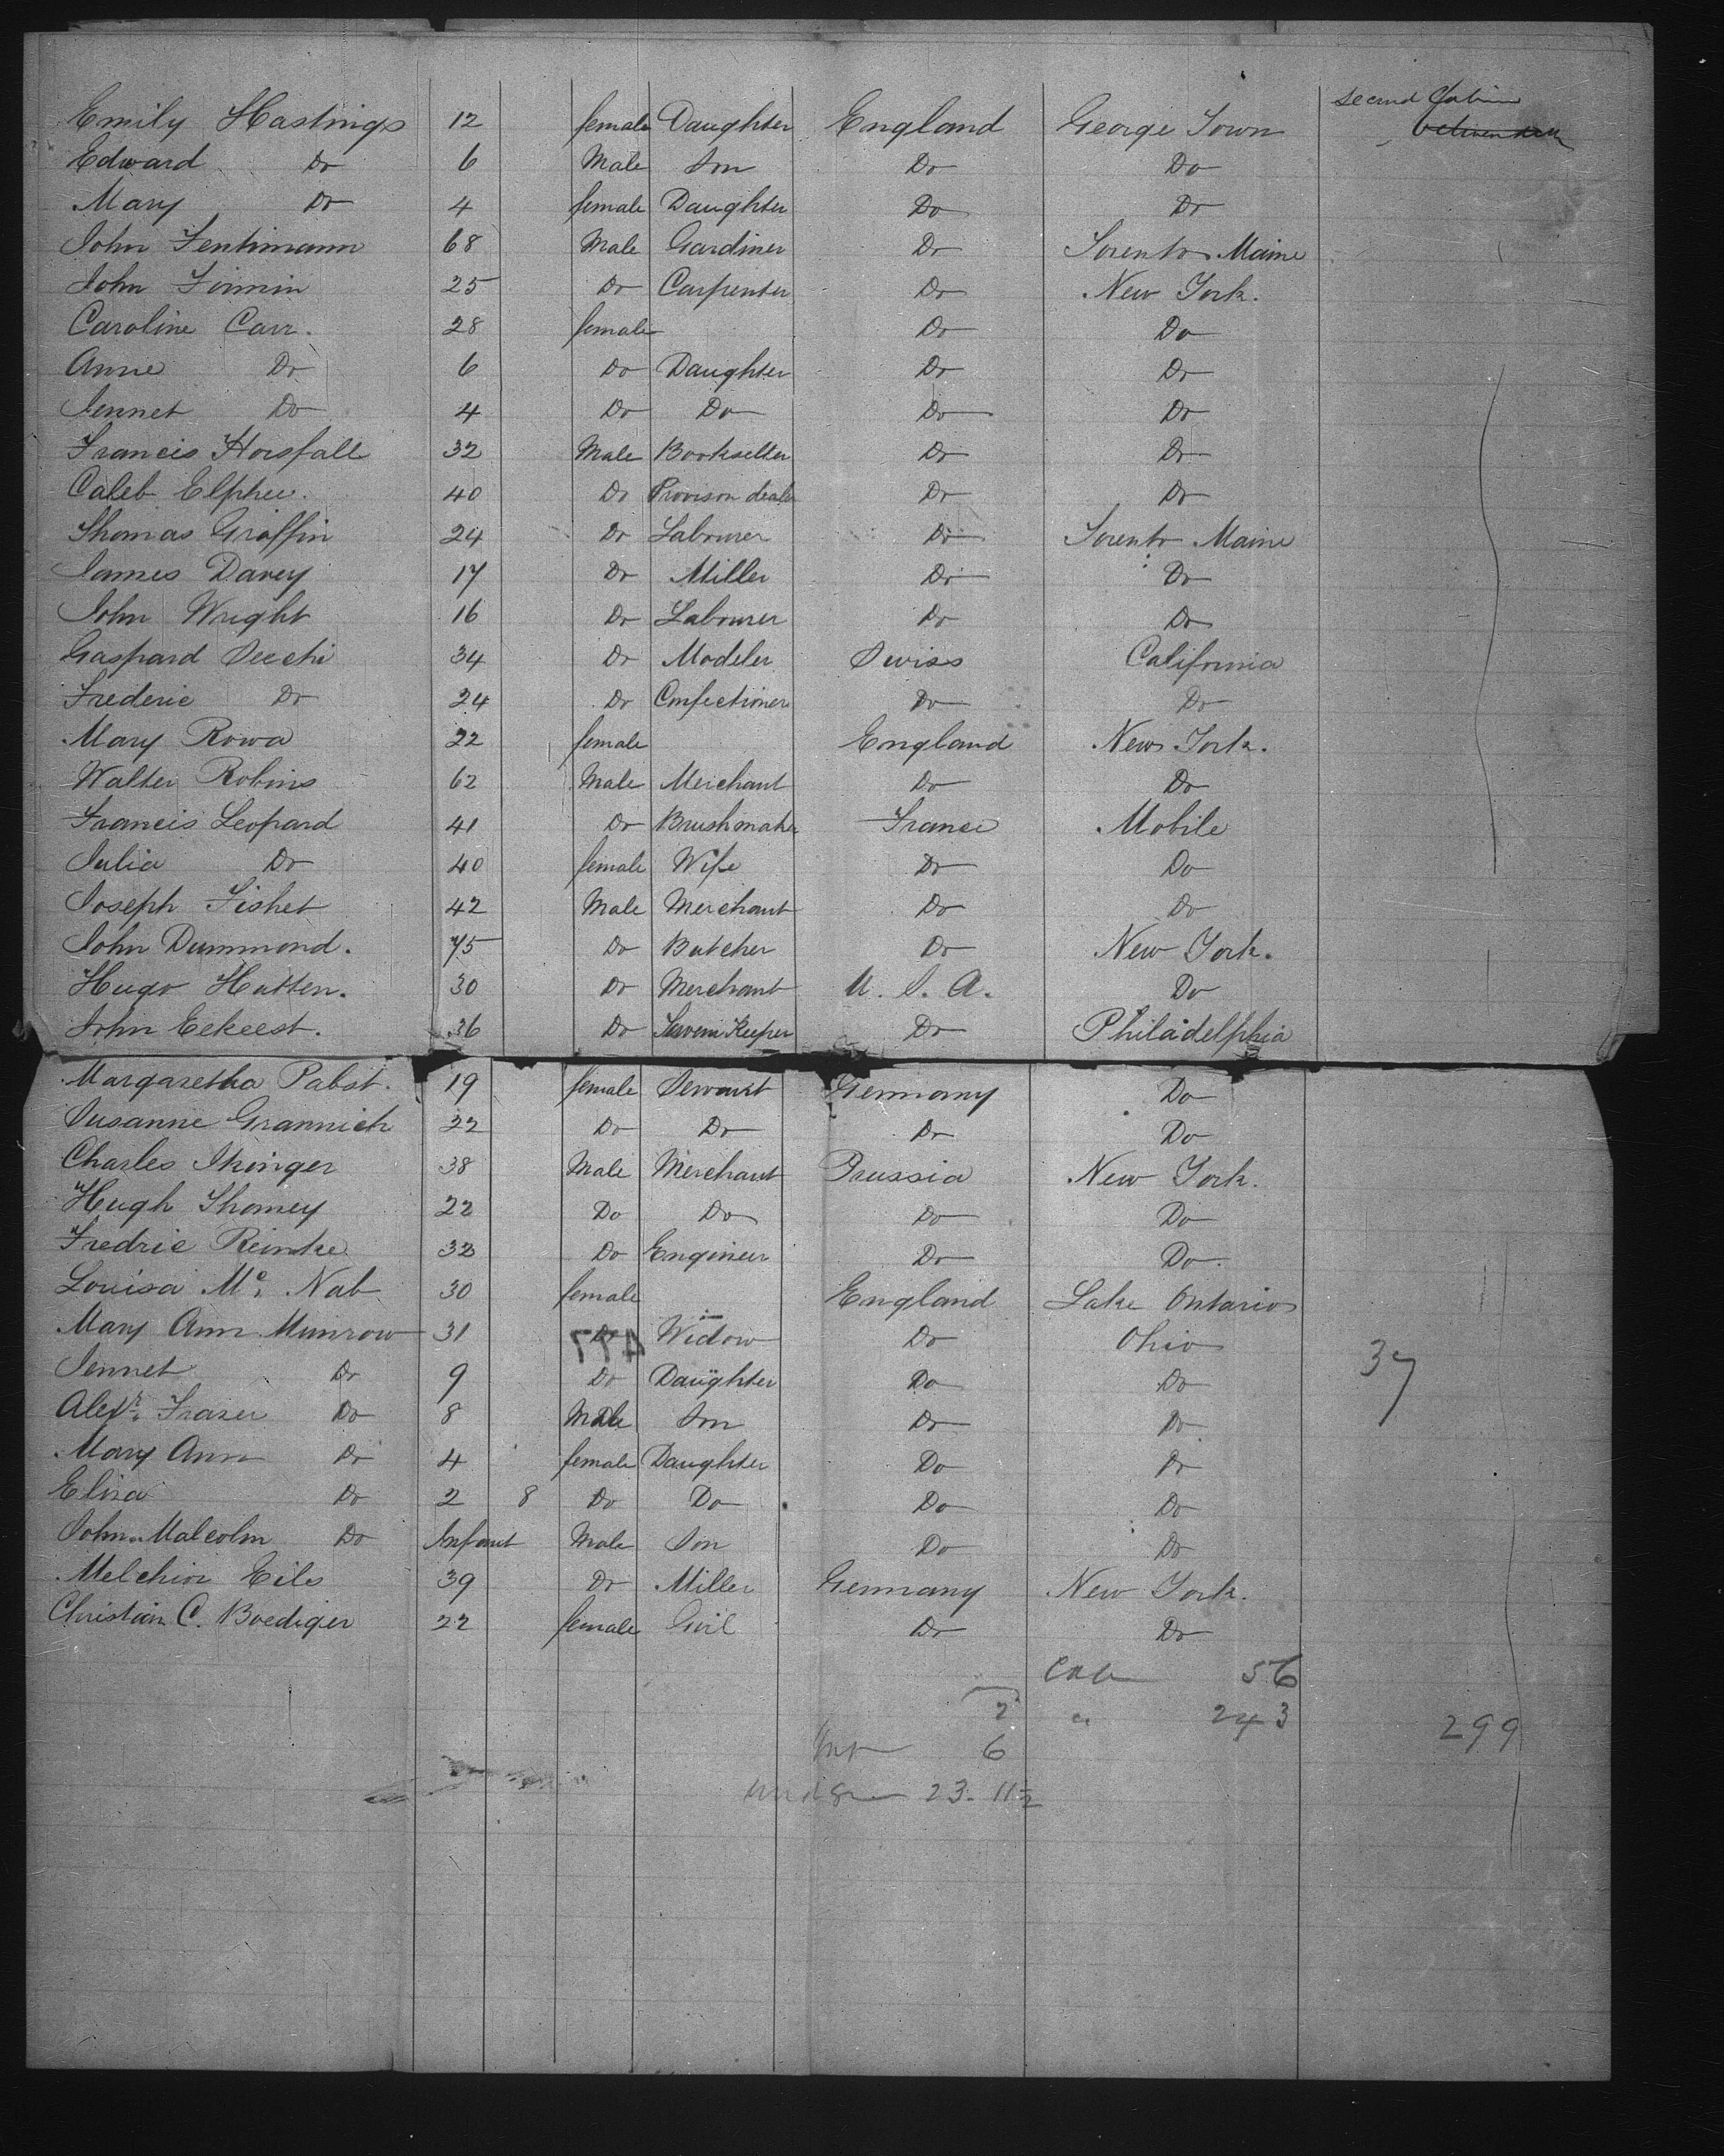 second Cabin
Emily Hastings 12 female Daughter England George Town between deck
Edward Do 6 Male Son Do Do
Mary Do 4 female Daughter Do Do
John Fentimann 68 Male Gardiner Do Torento Maine
John Firmin 25 Do Carpenter Do New York.
Caroline Carr. 28 female Do Do
Anne Do 6 Do Daughter Do Do
Jennet Do 4 Do Do Do Do
Francis Horsfall 32 Male Bookseller Do Do
Caleb Elphee. 40 Do Provison dealer Do Do
Thomas Graffin 24 Do Labourer Do Torento Maine
James Davey 17 Do Miller Do Do
John Wright 16 Do Labourer Do Do
Gaspard Secchi 34 Do Modeler Swiss California
Frederic Do 24 Do Confectioner Do Do
Mary Rowa 22 female England New York.
Walter Robins 62 Male Merchant Do Do
Francis Leopard 41 Do Brushmaker France Mobile
Julia Do 40 female Wife Do Do
Joseph Fishet 42 Male Merchant Do Do
John Dummond. 45 Do Butcher Do New York.
Hugo Hutten. 30 Do Merchant U. S. A. Do
John Eckeest. 36 Do Tavern Keeper Do Philadelphia
Margaretha Pabst. 19 female Servant Germany Do
Susanne Grannich 22 Do Do Do Do
Charles Ikinger 38 Male Merchant Prussia New York.
Hugh Thomey 22 Do Do Do Do
Fredric Reintke 32 Do Engineer Do Do.
Louisa Mc. Nab 30 female England Lake Ontario
Mary Ann Munrow 31 Do Widow Do Ohio
477
37
Jennet Do 9 Do Daughter Do Do
Alexr. Fraser Do 8 Male Son Do Do
Mary Ann Do 4 female Daughter Do Do
Eliza Do 2 8 Do Do Do Do
John Malcolm Do Infant Male Son Do Do
Melchior Eils 39 Do Miller Germany New York.
Christian C. Boediger 22 female Girl Do Do
56
2 " 243 299
Inf 6
und 8 23. 11½